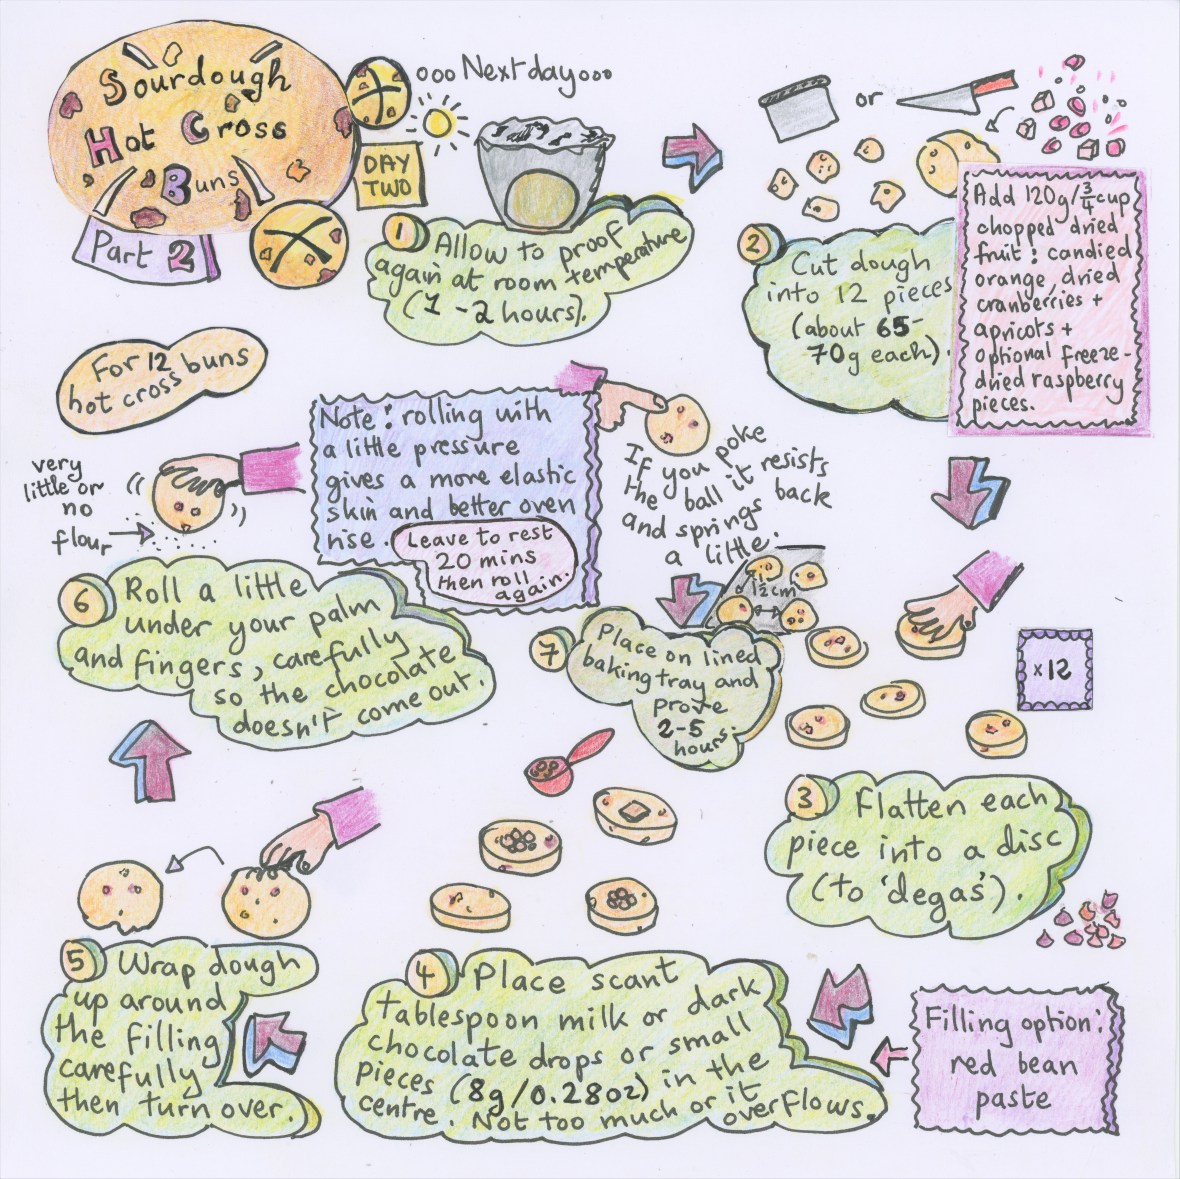 Sourdough
Hot Cross
Buns
Part 2
ooo Next day ooo
DAY
TWO
1 Allow to proof
again at room temperature
(1-2 hours).
or
2 Cut dough
into 12 pieces
(about 65-
70g each).
Add 120g/3/4 cup
chopped dried
fruit: candied
orange, dried
cranberries +
apricots +
optional freeze-
dried raspberry
pieces.
For 12 buns
hot cross
x12
3 Flatten each
piece into a disc
(to 'degas').
Filling option:
red bean
paste
4 Place scant
tablespoon milk or dark
chocolate drops or small
pieces (8g/0.28oz) in the
centre. Not too much or it
overflows.
5 Wrap dough
up around
the filling
carefully
then turn over.
very
little or
no
flour
6 Roll a little
under your palm
and fingers, carefully
so the chocolate
doesn't come out.
Note: rolling with
a little pressure
gives a more elastic
skin and better oven
rise.
Leave to rest
20 mins
then roll
again.
If you poke
the ball it resists
and springs back
a little.
1/2 cm
7 Place on lined
baking tray and
prove
2-5
hours.